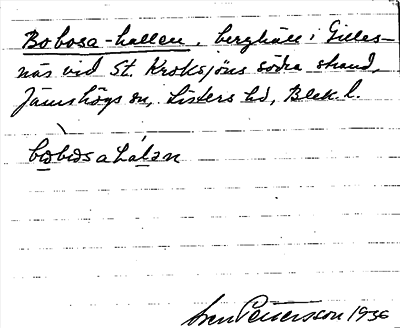 Bobosa-hallen, berghäll i Gilles-
näs vid St. Kroksjöns södra strand,
Jämshögs sn, Listers hd, Blek. l.
bobosahalan
Sven Pettersson 1936